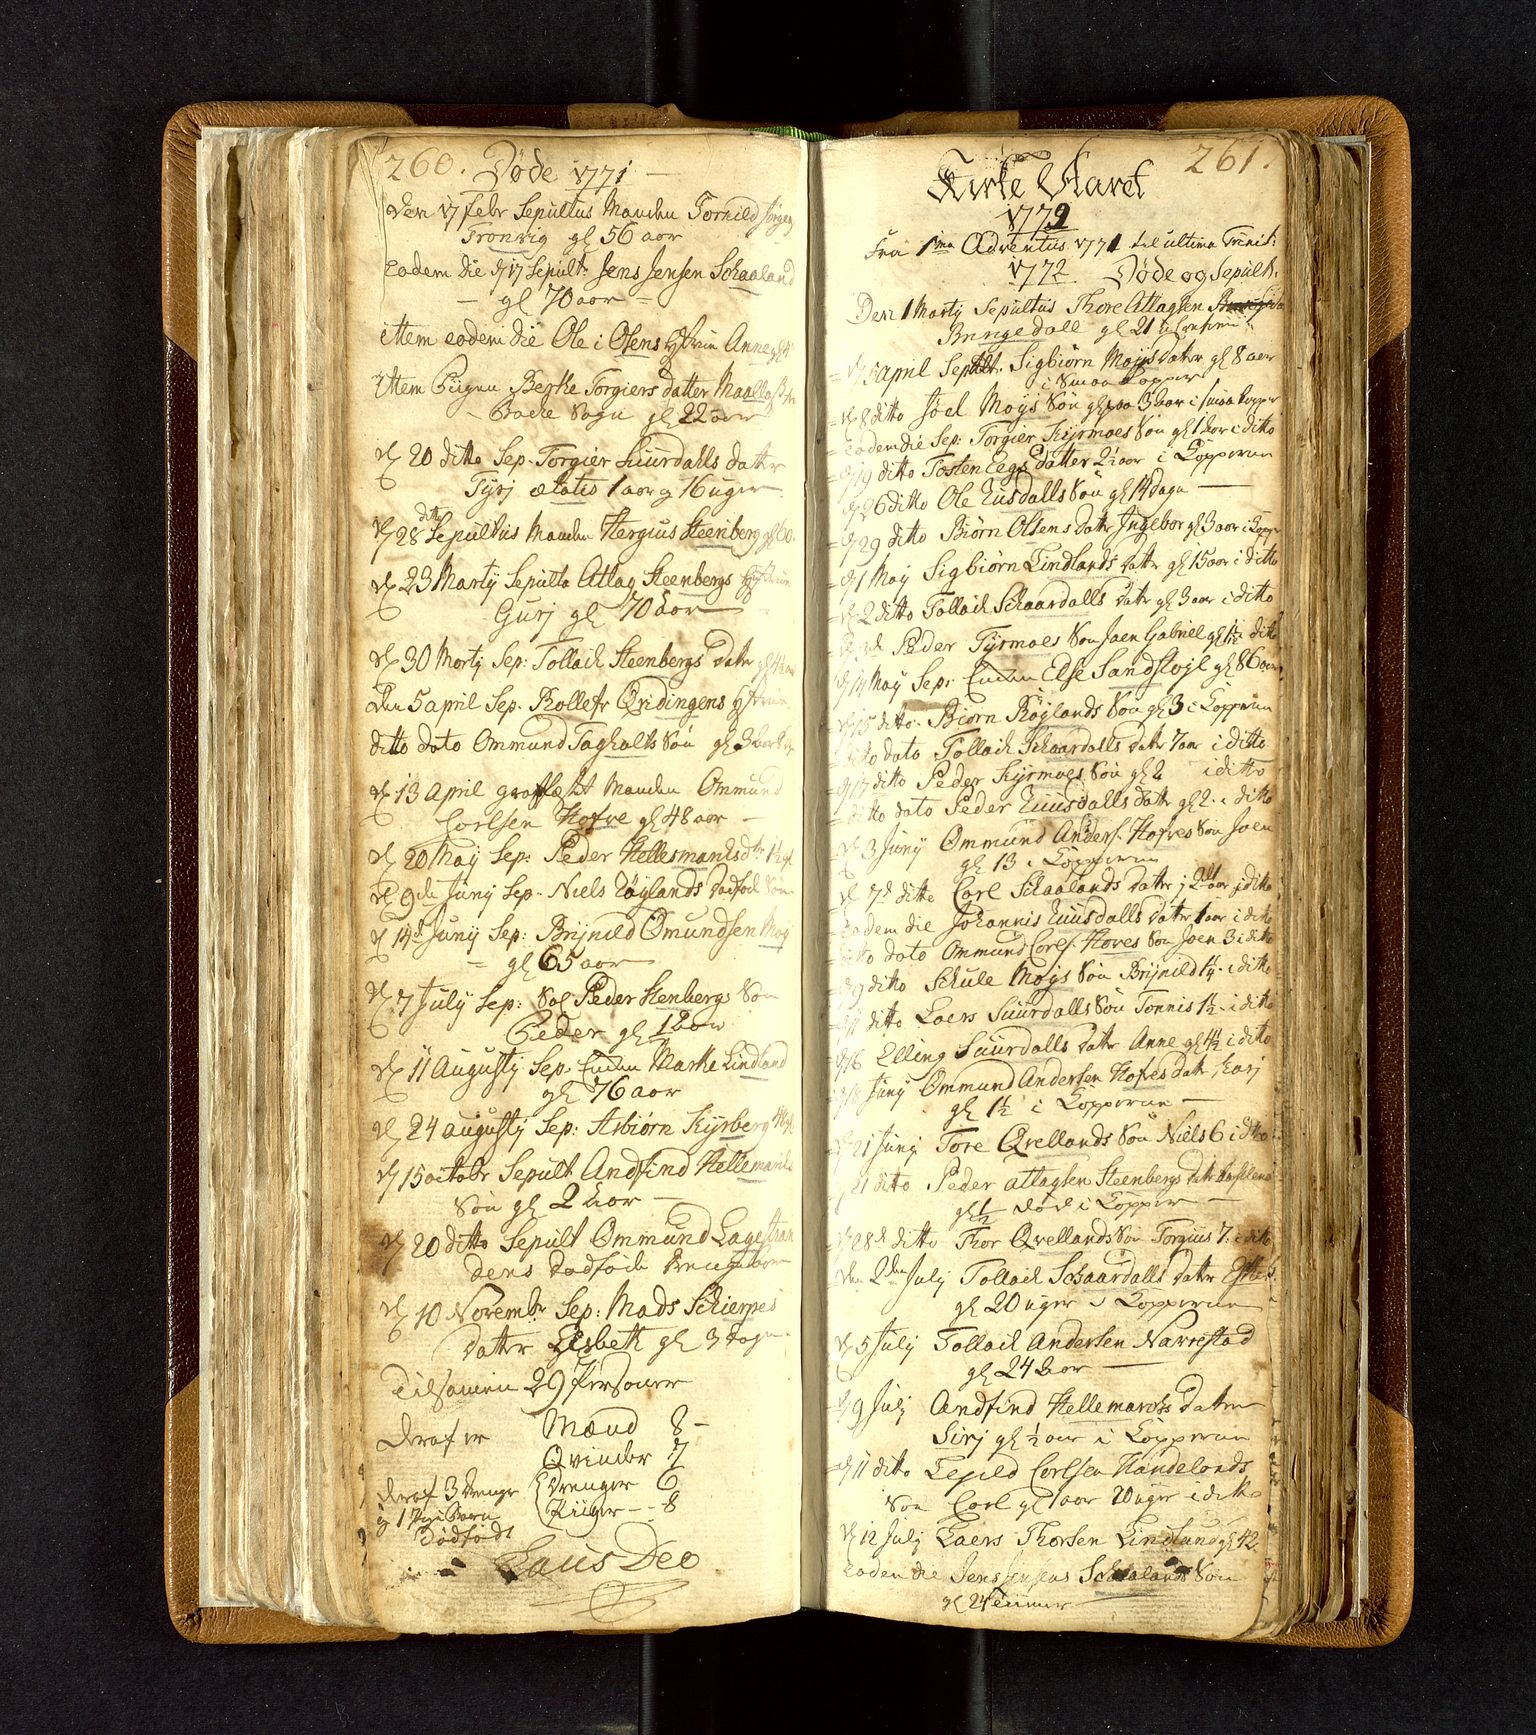 260. Døde 1771
Den 17 Febr Sepultus Manden Tornild
Tronvig gl 56 aar
eadem die d 17 Sepult: Jens Jensen Schaaland
gl 70 aar
ittem eodem die Ole i Olsens Hustrue Anne
ittem Pigen Berte Torgiers datter
Backe Sogn gl 22 aar
d 20 ditto Sep. Torgier Suurdahls datter
Tyrj ætatis 1 aar og 16 uger
d 28 ditto Sepultus Manden Tergius Steenberg gl 60.
d 23 Martij Sepulta Atlag Steenbergs Hustrue
Gurj gl 70 aar
d 30 Martij Sep: Tollack Steenbergs Datter gl 4½
Den 5 April Sep. Rollef Qvidingens Hustrue
ditto dato Ommund Taghalts Søn gl 3
d 13 April Manden Ommund
Corlsen Hofve gl 48 aar
d 20 Maij Sep: Peder Hellesmarks
d 9de Junij Sep. Niels Røylands dødfød Søn
d 14de Junij Sep: Brijnild Omundsen Moy
gl 65 aar
d 7 July Sep: Sal Peder Stenbergs Søn
Peder gl 12 aar
d 11 Augustij Sep. Enken Marthe Lindland
gl 76 aar
d 24 augustij Sep: Asbiørn Kyrberg
d 15 octobr Sepult Andfind Hellemarks
Søn gl 2 Aar
d 20 ditto Sepult Ommund Lagestran
dens dødføde
d 10 Novembr Sep: Mads Schierpes
datter Lisbeth gl 3 dage
Tilsamen 29 Personer
Deraf er Mænd 8
Qvinder 7
deraf 3 drenge Drenger 6
og 1 Pige Barn Piiger 8
Dødfødt
Laus Deo
261.
Kirke Aaret
1772
Fra 1ma Adventus 1771 til ultima Trinit:
1772 Døde og Sepult.
Den 1 Martij Sepultus Thore Atlagsen
Bringedall gl 21
d 5 April Sepult. Sigbiørn Moyisdatter gl 8 aar
i Smaa Kopper
d 8 ditto Joel Moijs Søn gl 3 aar i smaa kopper
Eadem die Sep: Torgier Kyrmoes Søn gl 1 aar i ditto
d 19 ditto Tosten Eegs datter 2½ aar i Kopperne
d 26 ditto Ole Eusdalls Søn gl 14 dage
d 29 ditto Biørn Olsens datr Ingebor gl 3 aar i Kopper
d 1 Maij Sigbiørn Lindlands datr gl 15 aar i ditto
d 2 ditto Tollack Schaardalls datr gl 3 aar i ditto
Peder Tyrmoes Søn Jaen Gabriel gl 1½ i ditto
d 14 Maij Sep: Enken Else Sandstøyl gl 86 aar
d 15 ditto Biørn Røylands Søn gl 3 i Kopperne
ditto dato Tollack Schaardalls datr 7 aar i ditto
d 17 ditto Peder Kyrmoes Søn gl 2 i ditto
ditto dato Peder Euusdalls datr gl 2. i ditto
d 3 Junij Ommund Anders. Hofves Søn Joen
gl 13 i Kopperne
d 7de ditto Carl Schaalands datter 2¼ aar i ditto
Eadem die Johannis Euusdalls datr 1 aar i ditto
ditto dato Ommund Corls. Hoves Søn Joen 3 i ditto
d 9 ditto Schule Moijs Søn Brijnild 1¼ i ditto
d 11 ditto Laers Suurdalls Søn Tønnis 1½ i ditto
d 16 Elling Suurdalls datr Anne gl 4½ i ditto
d 18 Junij Ommund Andersen Hofves datr Karj
gl 1½ i Kopperne
d 21 Junij Tore Qvellands Søn Niels 6 i ditto
d 21 ditto Peder atlagsen Steenbergs datr
gl ½ død i Kopper
d 28de ditto Thor Qvellands Søn Torgius 7. i ditto
Den 2den July Tollack Schaardalls datter
gl 20 uger i Kopperne
d 5 July Tollack Andersen Narrestad
gl 24 aar
d 9 July Andfind Hellemarks datter
Sirj gl ½ aar i Kopperne
d 11 ditto Corlsen Handelands
Søn Carl gl 1 aar 20 uger i ditto
d 12 July Laers Thorsen Lindland gl 42
Eadem die Jens Jensens Schaalands Søn
gl 24